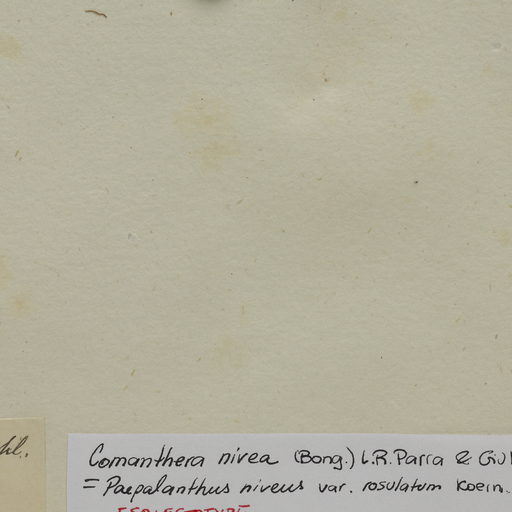 Comanthera nivea (Bong.) L.R.Parra & Giul
= Paepalanthus niveus var. rosulatum Koern.